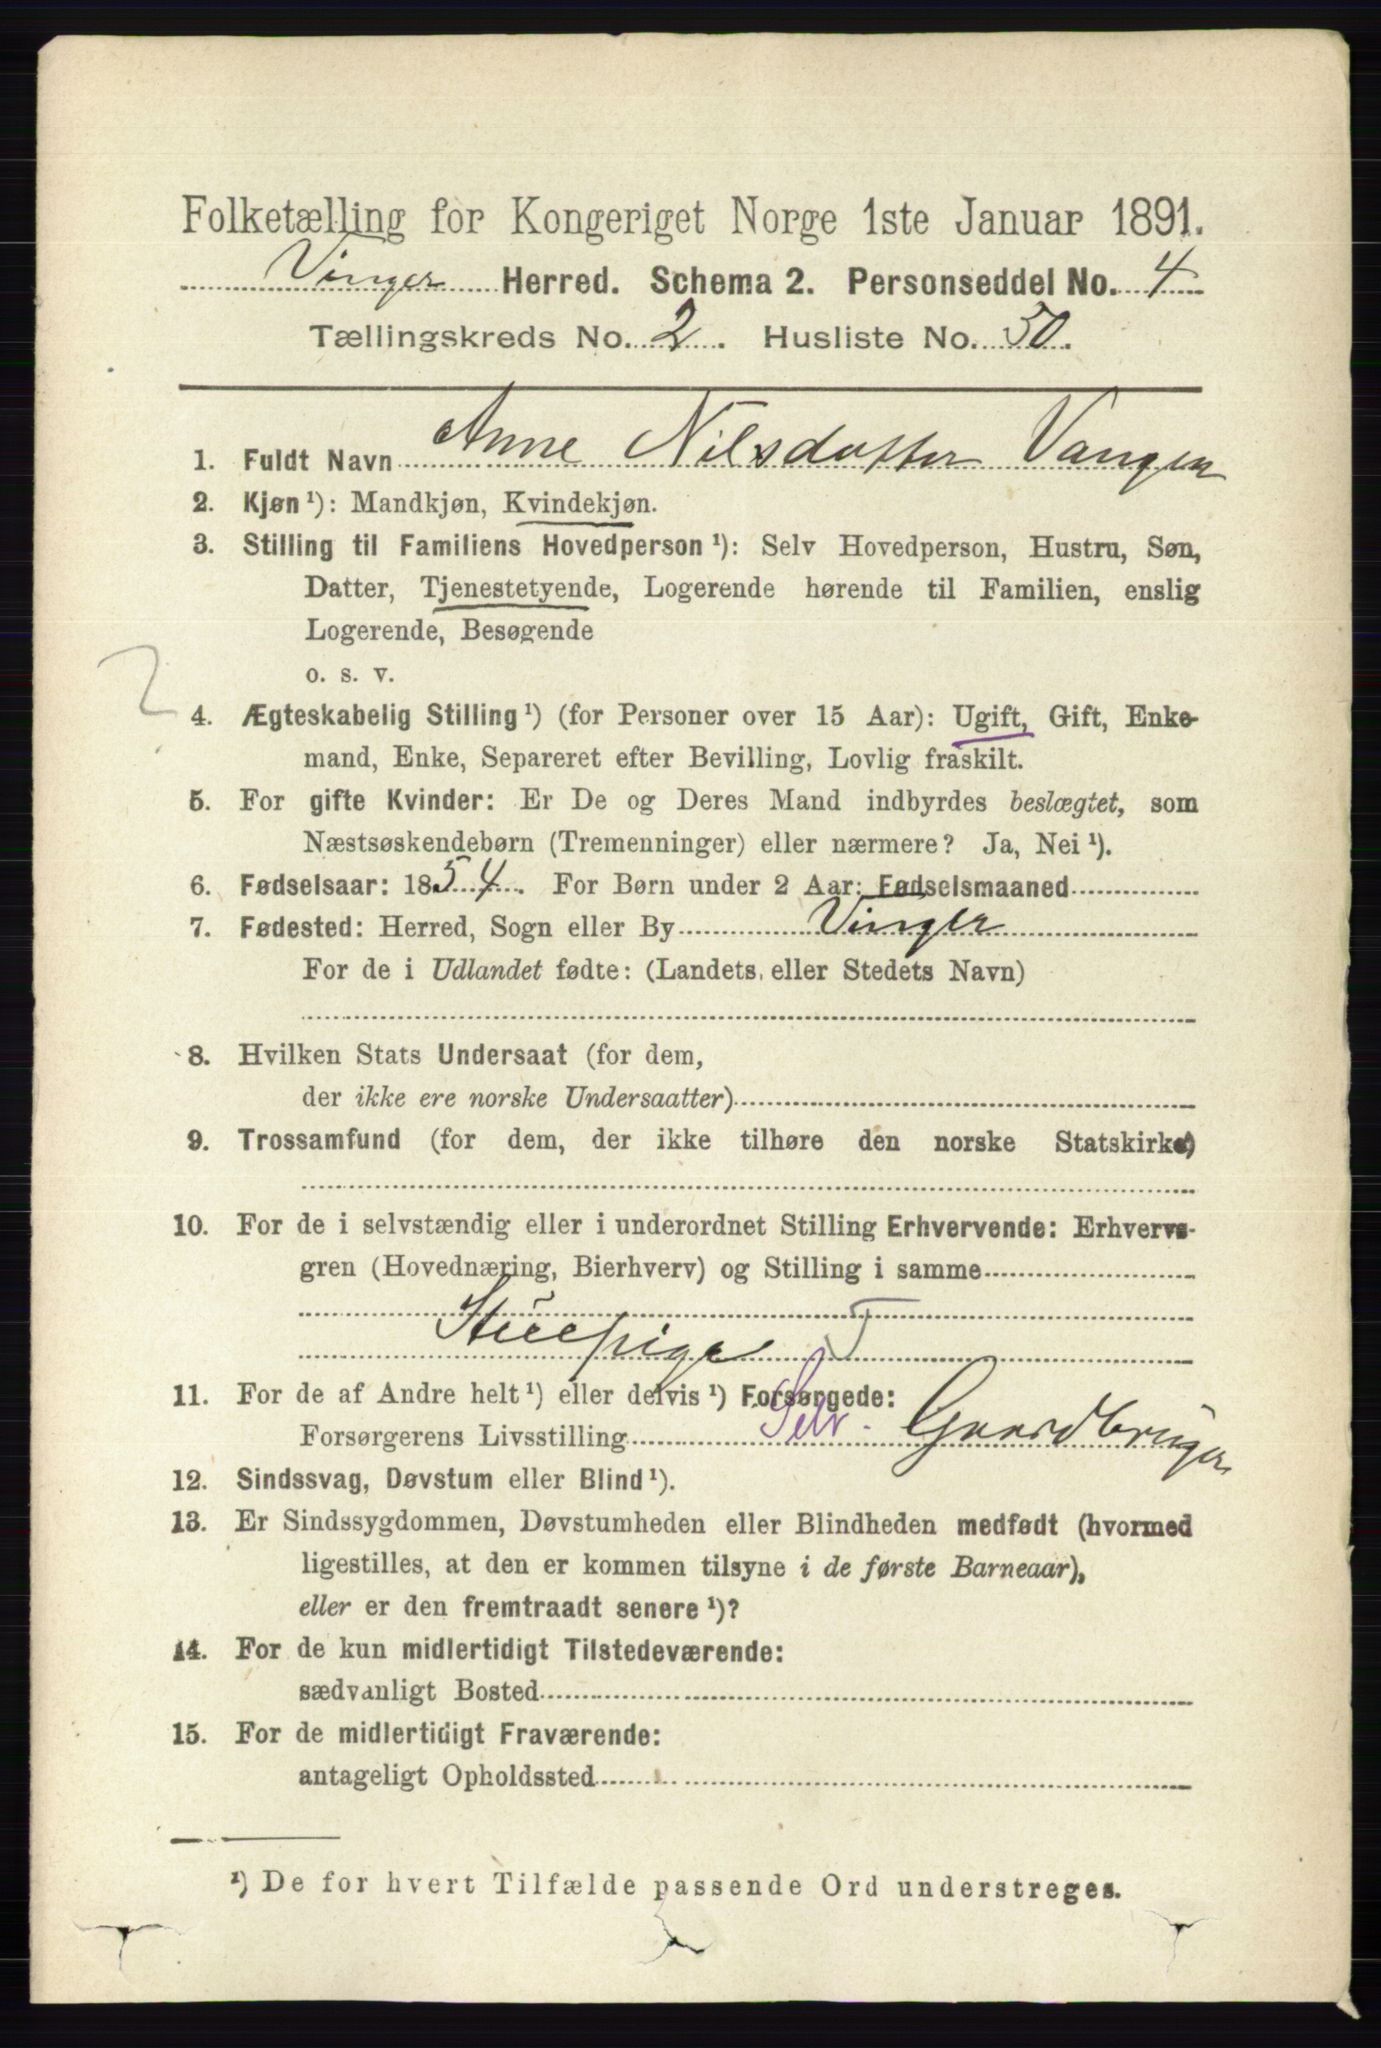 Folketælling for Kongeriget Norge 1ste Januar 1891.
Vinger Herred. Schema 2. Personseddel No. 4
Tællingskreds No. 2. Husliste No. 50.
1. Fuldt Navn Anne Nilsdatter Vangen
2. Kjøn ¹): Mandkjøn, Kvindekjøn.
3. Stilling til Familiens Hovedperson ¹): Selv Hovedperson, Hustru, Søn,
Datter, Tjenestetyende, Logerende hørende til Familien, enslig
Logerende, Besøgende
o. s. v.
4. Ægteskabelig Stilling ¹) (for Personer over 15 Aar): Ugift, Gift, Enke-
mand, Enke, Separeret efter Bevilling, Lovlig fraskilt.
5. For gifte Kvinder: Er De og Deres Mand indbyrdes beslægtet, som
Næstsøskendebørn (Tremenninger) eller nærmere? Ja, Nei ¹).
6. Fødselsaar: 1854. For Børn under 2 Aar: Fødselsmaaned
7. Fødested: Herred, Sogn eller By Vinger
For de i Udlandet fødte: (Landets eller Stedets Navn)
8. Hvilken Stats Undersaat (for dem,
der ikke ere norske Undersaatter)
9. Trossamfund (for dem, der ikke tilhøre den norske Statskirke)
10. For de i selvstændig eller i underordnet Stilling Erhvervende: Erhvervs-
gren (Hovednæring, Bierhverv) og Stilling i samme
Stuepige T
11. For de af Andre helt ¹) eller delvis ¹) Forsørgede:
Forsørgerens Livsstilling Selv. Gaardbruger
12. Sindssvag, Døvstum eller Blind ¹).
13. Er Sindssygdommen, Døvstumheden eller Blindheden medfødt (hvormed
ligestilles, at den er kommen tilsyne i de første Barneaar),
eller er den fremtraadt senere ¹)?
14. For de kun midlertidigt Tilstedeværende:
sædvanligt Bosted
15. For de midlertidigt Fraværende:
antageligt Opholdssted
¹) De for hvert Tilfælde passende Ord understreges.